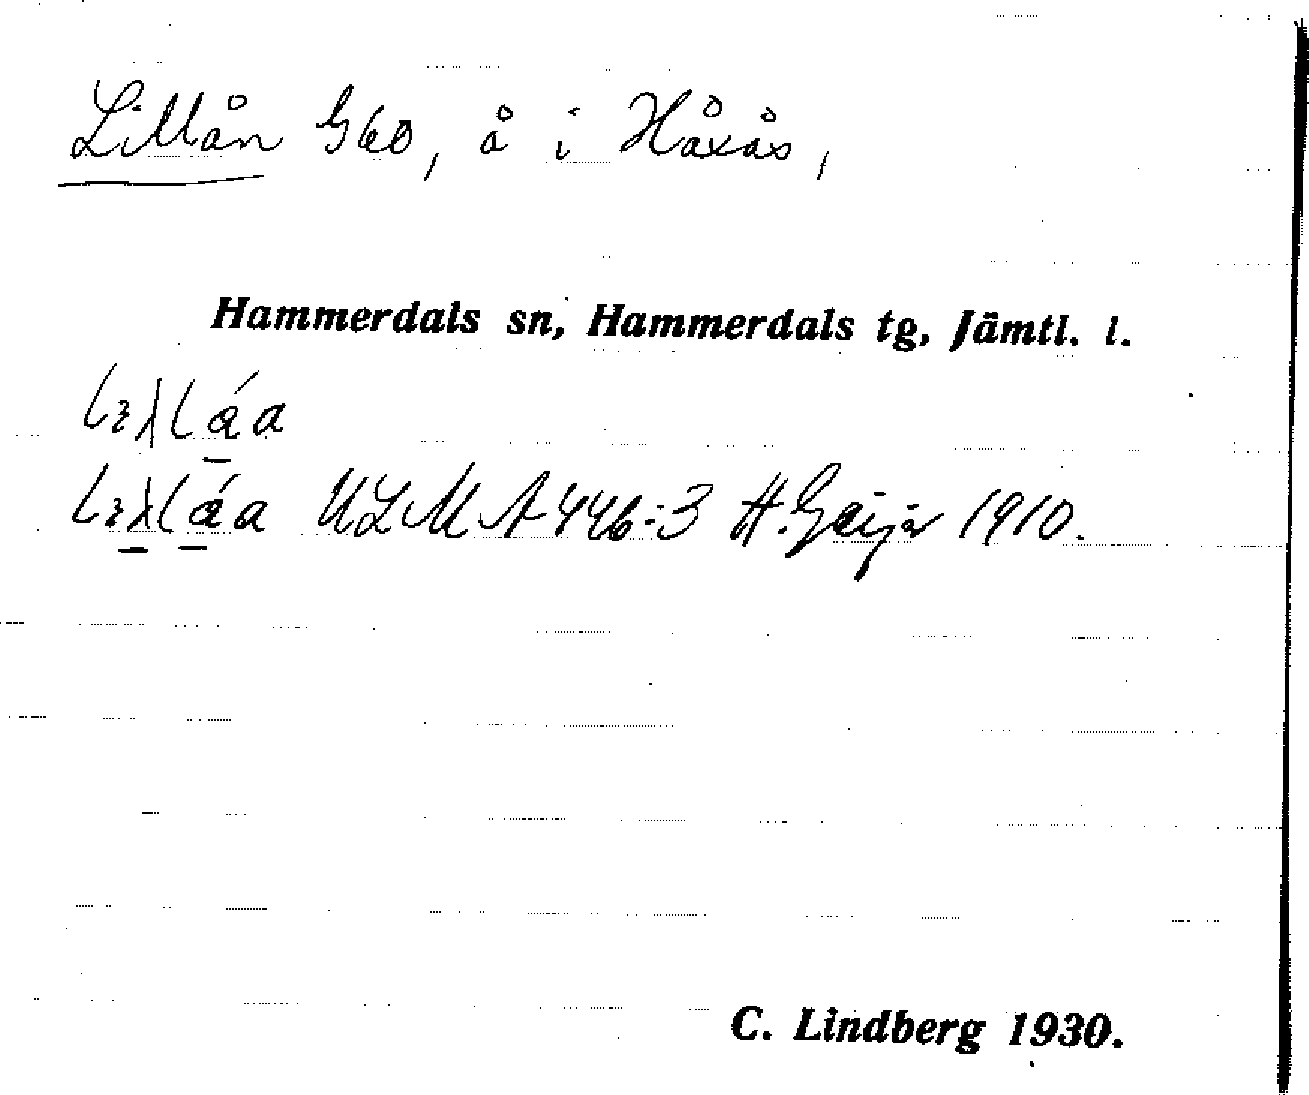 Lillån G60, å i Håxås,
Hammerdals sn, Hammerdals tg, Jämtl. l.
ULMA 446:3 H. Geijer 1910.
C. Lindberg 1930.